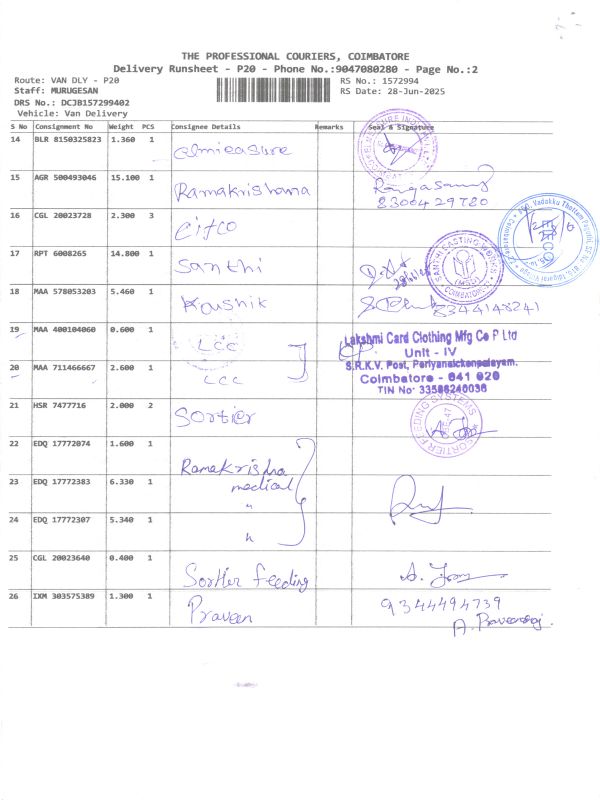 THE PROFESSIONAL COURIERS, COIMBATORE
Delivery Runsheet - P20 - Phone No.:9047080280 - Page No.:2
Route: VAN DLY - P20
RS No.: 1572994
Staff: MURUGESAN
RS Date: 28-Jun-2025
DRS No.: DCJB157299402
Vehicle: Van Delivery
S No Consignment No Weight PCS Consignee Details Remarks Seal & Signature
14 BLR 8150325823 1.360 1
15 AGR 500493046 15.100 1 Ramakrishana Rangasamy
8300429780
16 CGL 20023728 2.300 3
17 RPT 6008265 14.800 1 Santhi
SANTHI CASTING WORKS
COIMBATORE
18 MAA 578053203 5.460 1 Kaushik 8344148241
19 MAA 400104060 0.600 1 LCC
Lakshmi Card Clothing Mfg Co P Ltd
Unit - IV
20 MAA 711466667 2.600 1 LCC
S.R.K.V. Post, Periyanaickenpalayam.
Coimbatore - 641 020
TIN No
21 HSR 7477716 2.000 2 Sortier
SORTIER FEEDING SYSTEMS
22 EDQ 17772074 1.600 1 Ramakrishna
medical
23 EDQ 17772383 6.330 1 "
24 EDQ 17772307 5.340 1 "
25 CGL 20023640 0.400 1 Sortier feeding
26 IXM 303575389 1.300 1 Praveen 9344494739